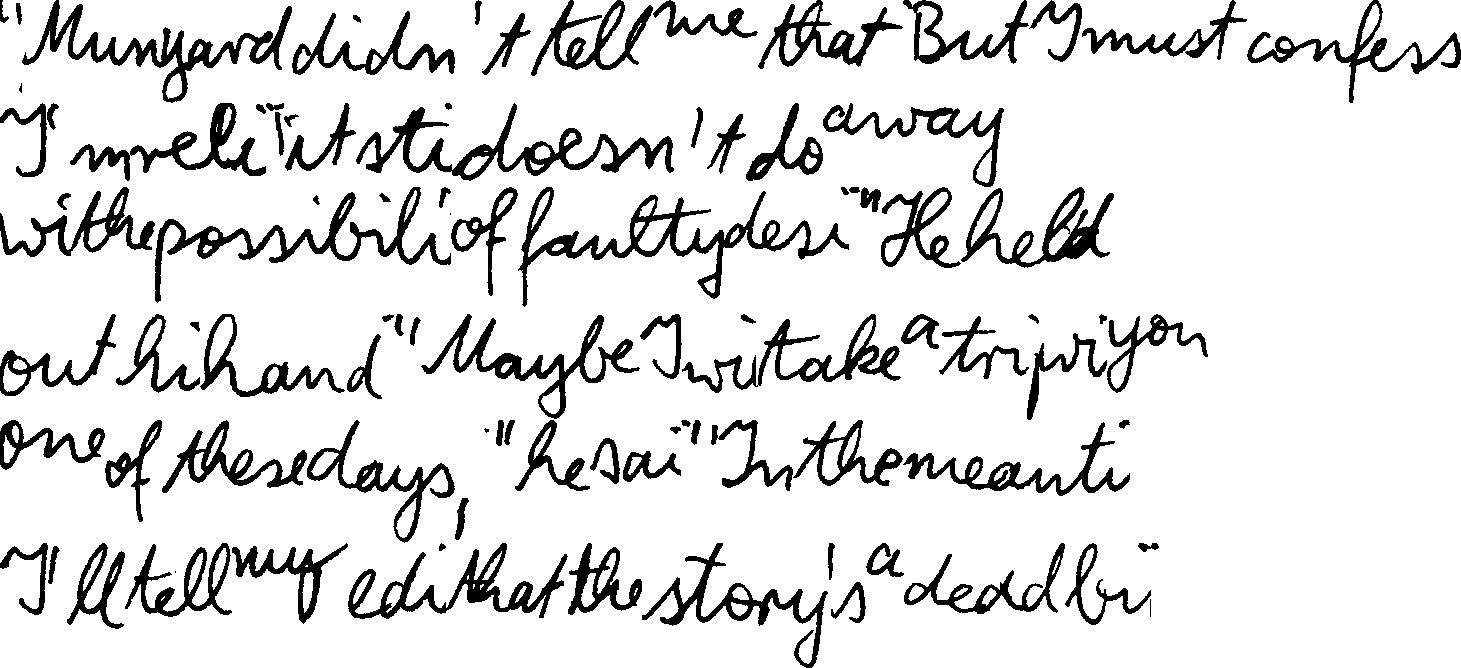 "Munyard didn't tell me that But I must confess
I'm reli" "it sti doesn't do away
withe possibili of faulty desi" "He held
out hi hand "Maybe I wi take a trip wi you
one of these days, "he sai" "In the meanti
I'll tell my edi that the story's a dead bi